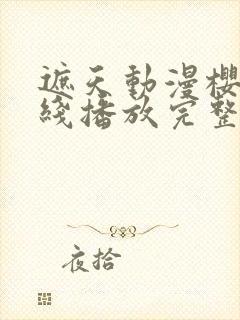 遮天動漫櫻
綫播放完整
夜拾